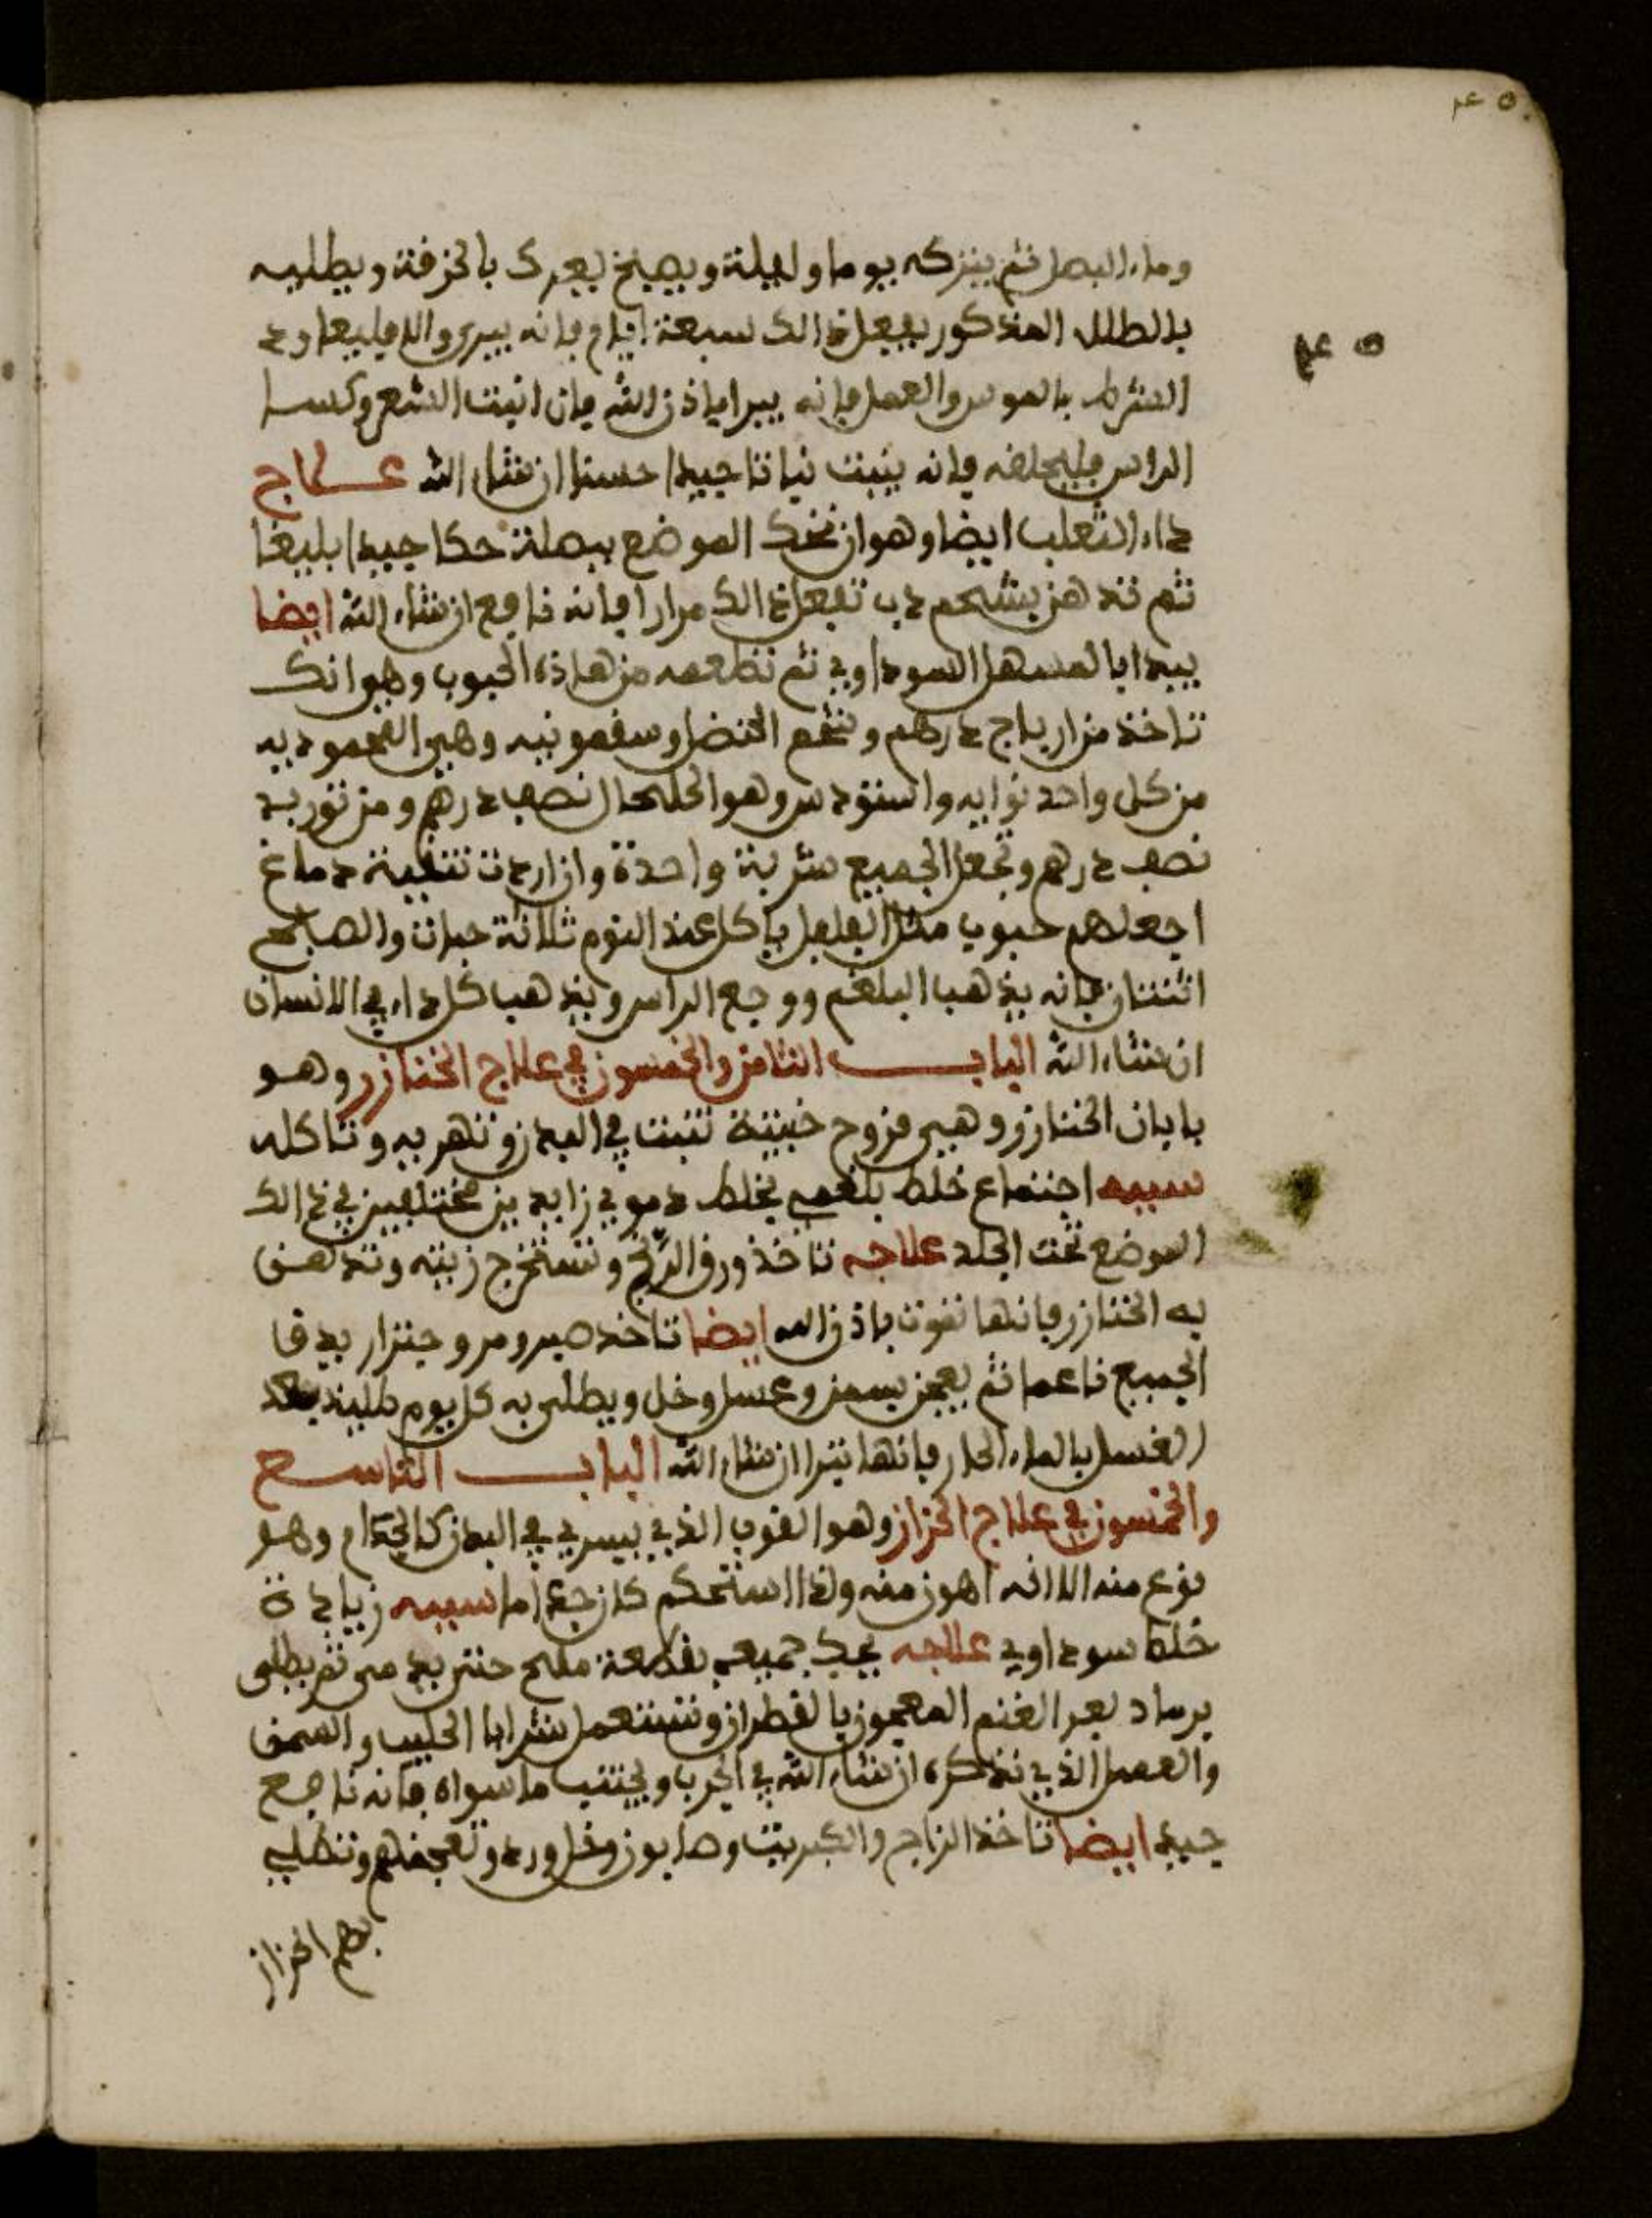 وماء البصل ثم يتركه يوما وليلة ويصبح يعرك بالخرقة ويطليه
بالطلاء المذكور يفعل ذالك سبعة ايام فانه يبرى والا فليعاود
الشرط بالموس والعمل فانه يبرا باذن الله فان انبت الشعر وكسا
الراس فليحلقه فانه ينبت نباتا جيدا حسنا ان شاء الله عـــلاج
داء الثعلب ايضا وهو ان تحك الموضع ببصلة حكا جيدا بليغا
ثم تدهن بشحم دب تفعل ذالك مرارا فانه نافع ان شاء الله ايضا
يبدا بالمسهل السوداوي ثم تطعمه من هاذه الحبوب وهو انك
تاخذ من ارياج درهم وشحم الحنضل وسقمونيه وهي المحموديه
من كل واحد نوايه واستودس وهو الحلحال نصف درهم ومن توربد
نصف درهم وتجعل الجميع شربة واحدة وان اردت تنقية دماغ
اجعلهم حبوب مثل الفلفل ياكل عند النوم ثلاثة حبات والصباح
اثنتان فانه يذهب البلغم ووجع الراس ويذهب كل داء في الانسان
ان شاء الله البابـــ الثامن والخمسون في علاج الخنازر وهو
بابان الخنازر وهي قروح خبيثة تنبت في البدن وتهريه وتاكله
سببه اجتماع خلط بلغمي بخلط دموي زايدين مختلفين في ذالك
الموضع تحت الجلد علاجه تاخذ ورق وتستخرج زيته وتدهن
به الخنازر فانها تموت باذن الله ايضا تاخذ صبر ومر وجنزار يدقا
الجميع ناعما ثم يعجن بسمن وعسل وخل ويطلى به كل يوم بعد
الغسل بالماء الحار فانها تبرا ان شاء الله البابـــ التاسع
والخمسون في علاج الحزاز وهو القوب الذي يسري في البدن كالجذام وهو
نوع منه الا انه اهون منه واذا استحكم كان جذاما سببه زيادة
خلط سوداوي علاجه يحك جميعه بقطعة ملح حتى يدمى ثم يطلى
برماد بعر الغنم المعجون بالقطران وتستعمل شرابا الحليب والسمن
والعسل الذي نذكره ان شاء الله في الجرب ويجتنب ما سواه فانه ناجع
جيد ايضا تاخذ الزاج والكبريت وصابون وخل وتعجنهم وتطلي
بهم الحزاز